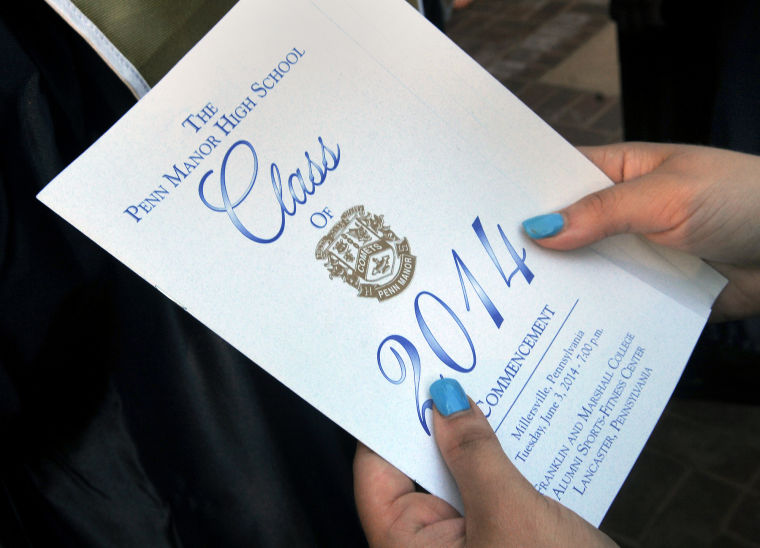 THE
PENN MANOR HIGH SCHOOL
Class
OF
COMETS
PENN MANOR
2014
COMMENCEMENT
Millersville, Pennsylvania
Tuesday, June 3, 2014 - 7:00 p.m.
FRANKLIN AND MARSHALL COLLEGE
ALUMNI SPORTS-FITNESS CENTER
LANCASTER, PENNSYLVANIA